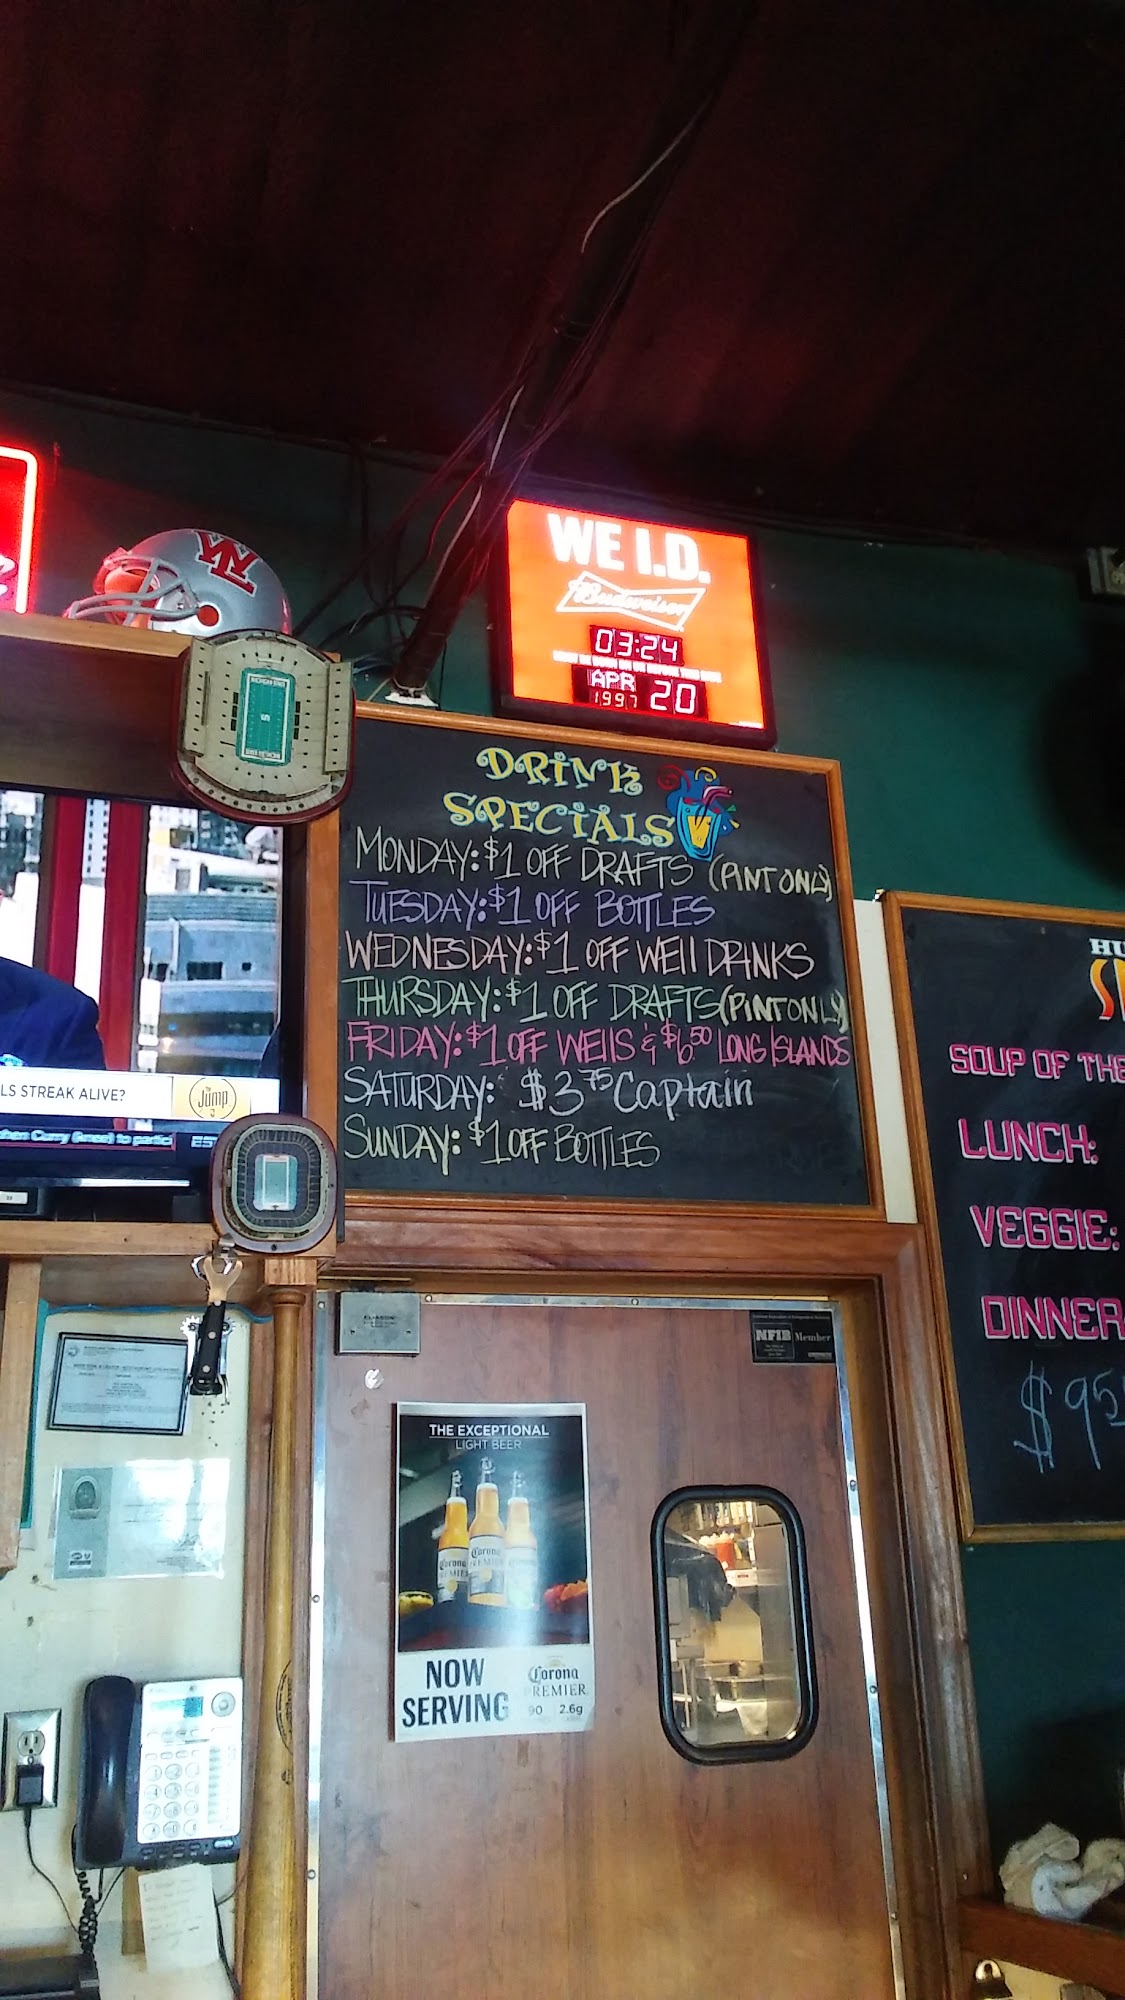 WE I.D.
Budweiser
03:24
MUST BE BORN ON OR BEFORE THIS DATE
APR 20
1997
WL
MICHIGAN STATE
DRINK
SPECIALS
MONDAY: $1 OFF DRAFTS (PINT ONLY)
TUESDAY: $1 OFF BOTTLES
WEDNESDAY: $1 OFF WEll DRINKS
THURSDAY: $1 OFF DRAFTS (PINT ONLY)
FRIDAY: $1 OFF WEllS & $6.50 LONG ISLANDS
SATURDAY: $3.75 Captain
SUNDAY: $1 OFF BOTTLES
LS STREAK ALIVE?
The Jump
phen Curry (knee) to partici
HU
SP
SOUP OF THE
LUNCH:
VEGGIE:
DINNER
$95
ELIASON
NFIB Member
THE EXCEPTIONAL
LIGHT BEER
Corona
PREMIER
NOW
SERVING
Corona
PREMIER
90 2.6g